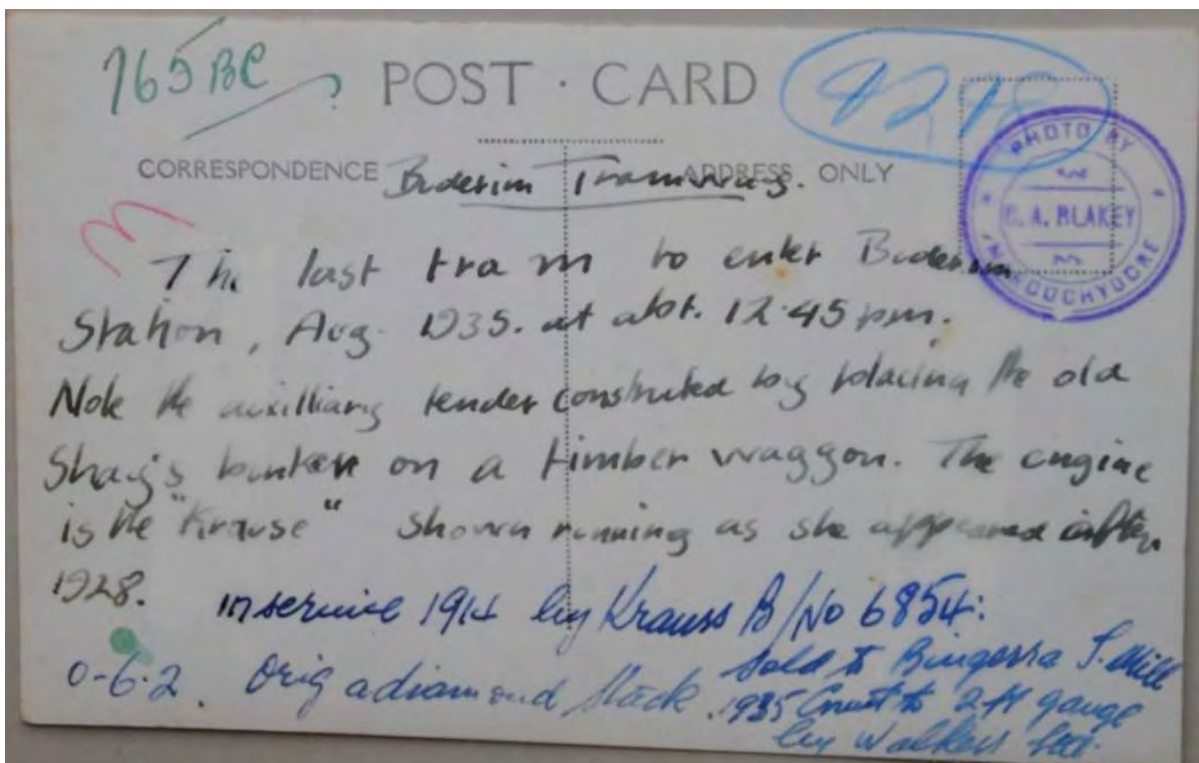 765 BC
POST · CARD
4278
CORRESPONDENCE ADDRESS ONLY
PHOTO BY
C. A. BLAKEY
MAROOCHYDORE
Buderim Tramway.
The last tram to enter Buderim
Station, Aug. 1935. at abt. 12.45 pm.
Note the auxilliary tender constructed by placing the old
Shay's bunker on a timber waggon. The engine
is the "Krause" shown running as she appeared after
1928.
in service 1914 by Krauss B/No 6854:
0-6-2. Orig a diamond stack. Sold to Bingera S. Mill
1935 Convt to 2 ft gauge
by Walkers Ltd.